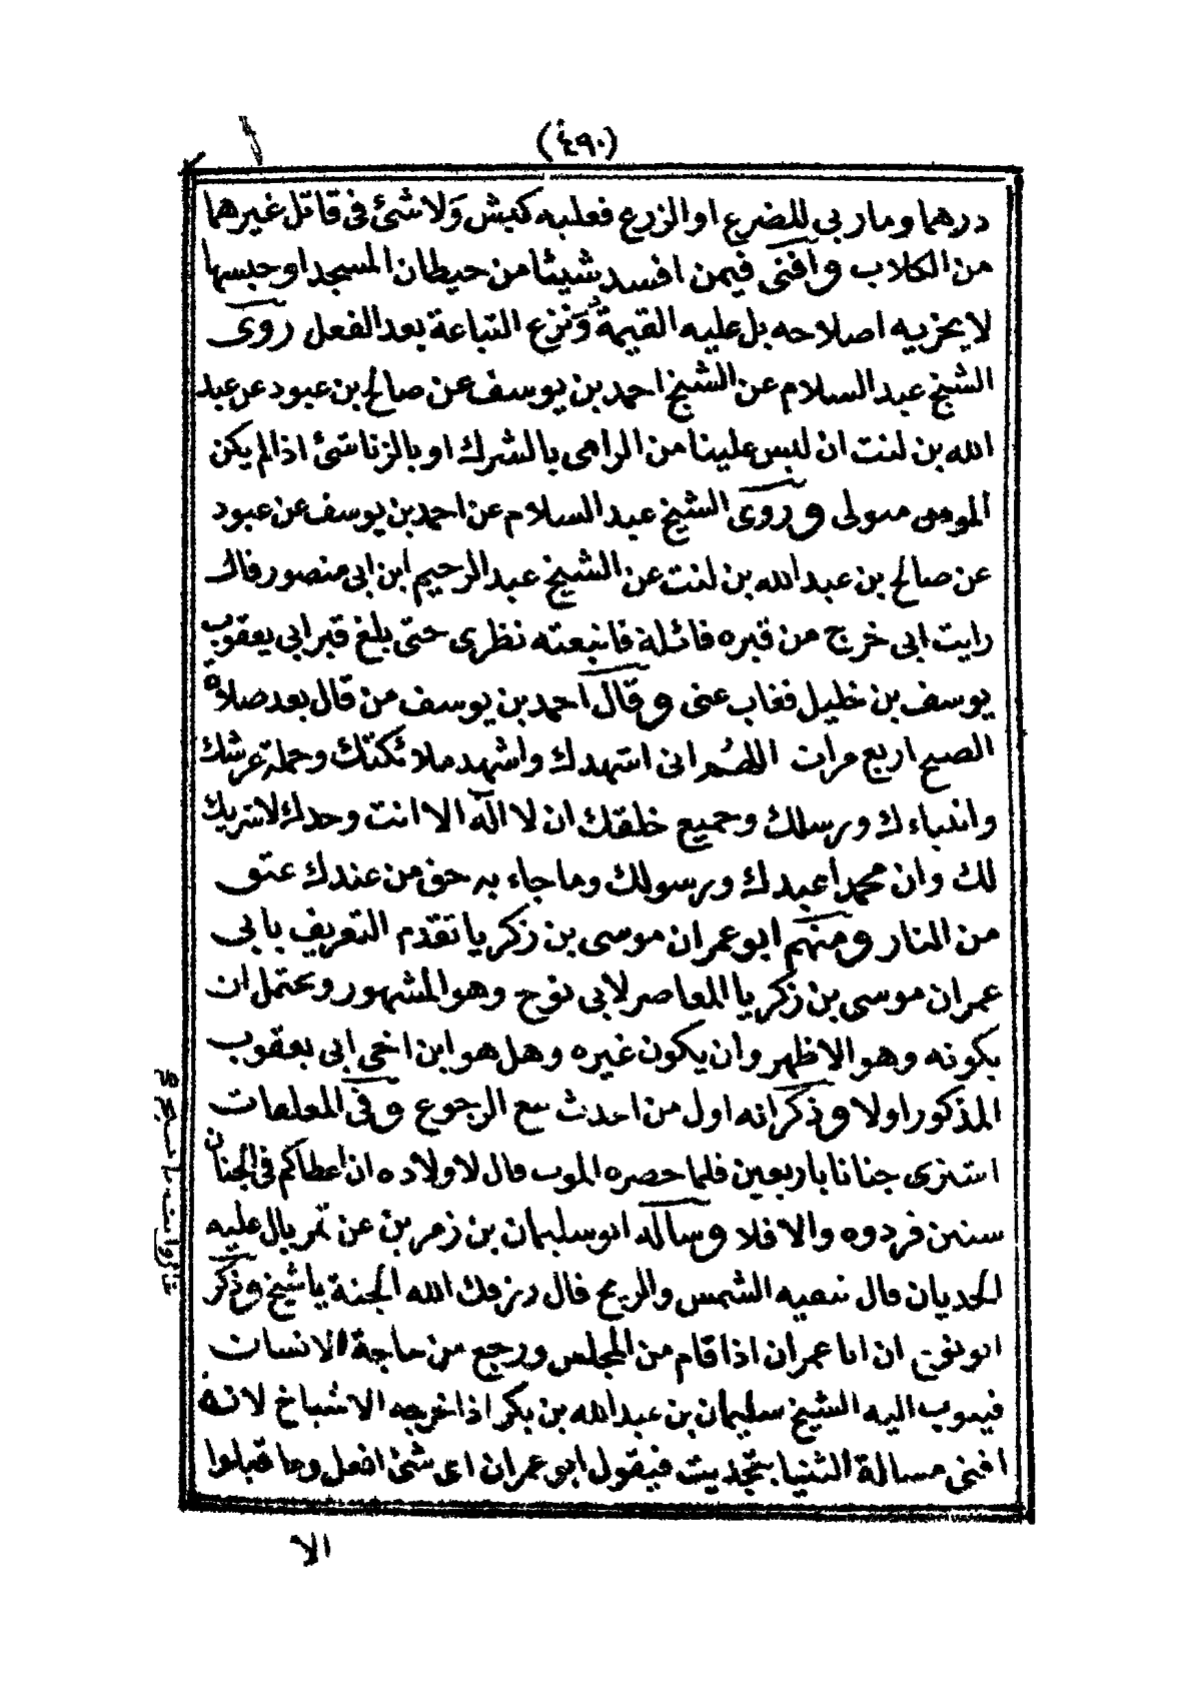 (٤٩٠)
درهما وما ربي للضرع او الزرع فعليه كبش ولا شئ فى قاتل غيرهما
من الكلاب وافتى فيمن افسد شيئا من حيطان المسجد او حبسها
لا يجزيه اصلاحه بل عليه القيمة ونزع التباعة بعد الفعل روى
الشيخ عبد السلام عن الشيخ احمد بن يوسف عن صالح بن عبود عن عبد
الله بن لنت ان ليس علينا من الرامى بالشرك او بالزنا شئ اذا لم يكن
المومى متولى وروى الشيخ عبد السلام عن احمد بن يوسف عن عبود
عن صالح بن عبد الله بن لنت عن الشيخ عبد الرحيم ابن ابى منصور قال
رايت ابى خرج من قبره قائلة فاتبعته نظرى حتى بلغ قبر ابى يعقوب
يوسف بن خليل فغاب عنى وقال احمد بن يوسف من قال بعد صلاة
الصبح اربع مرات اللهم انى اشهدك واشهد ملائكتك وحملة عرشك
وانبياءك ورسلك وجميع خلقك ان لا اله الا انت وحدك لا شريك
لك وان محمدا عبدك ورسولك وما جاء به حق من عندك عتق
من النار ومنهم ابو عمران موسى بن زكريا تقدم التعريف بابى
عمران موسى بن زكريا المعاصر لابى نوح وهو المشهور ويحتمل ان
يكونه وهو الاظهر وان يكون غيره وهل هو ابن اخى ابى يعقوب
المذكور اولا وذكر انه اول من احدث بيع الرجوع وفى المعلقات
اشترى جنانا باربعين فلما حضره الموت قال لاولاده ان اعطاكم فى الجنان
ستين فردوه والا فلا وساله ابو سليمان بن زمرين عن تمر بال عليه
الجديان قال تنقيه الشمس والريح قال رزقك الله الجنة يا شيخ وذكر
ابو نوح ان ابا عمران اذا قام من المجلس ورجع من حاجة الانسان
اليه الشيخ سليمان بن عبد الله بن بكر اذا الاشياخ لانه
افتى مسالة الثنيا فيقول ابو عمران اى شئ افعل وما قبلوا
الا